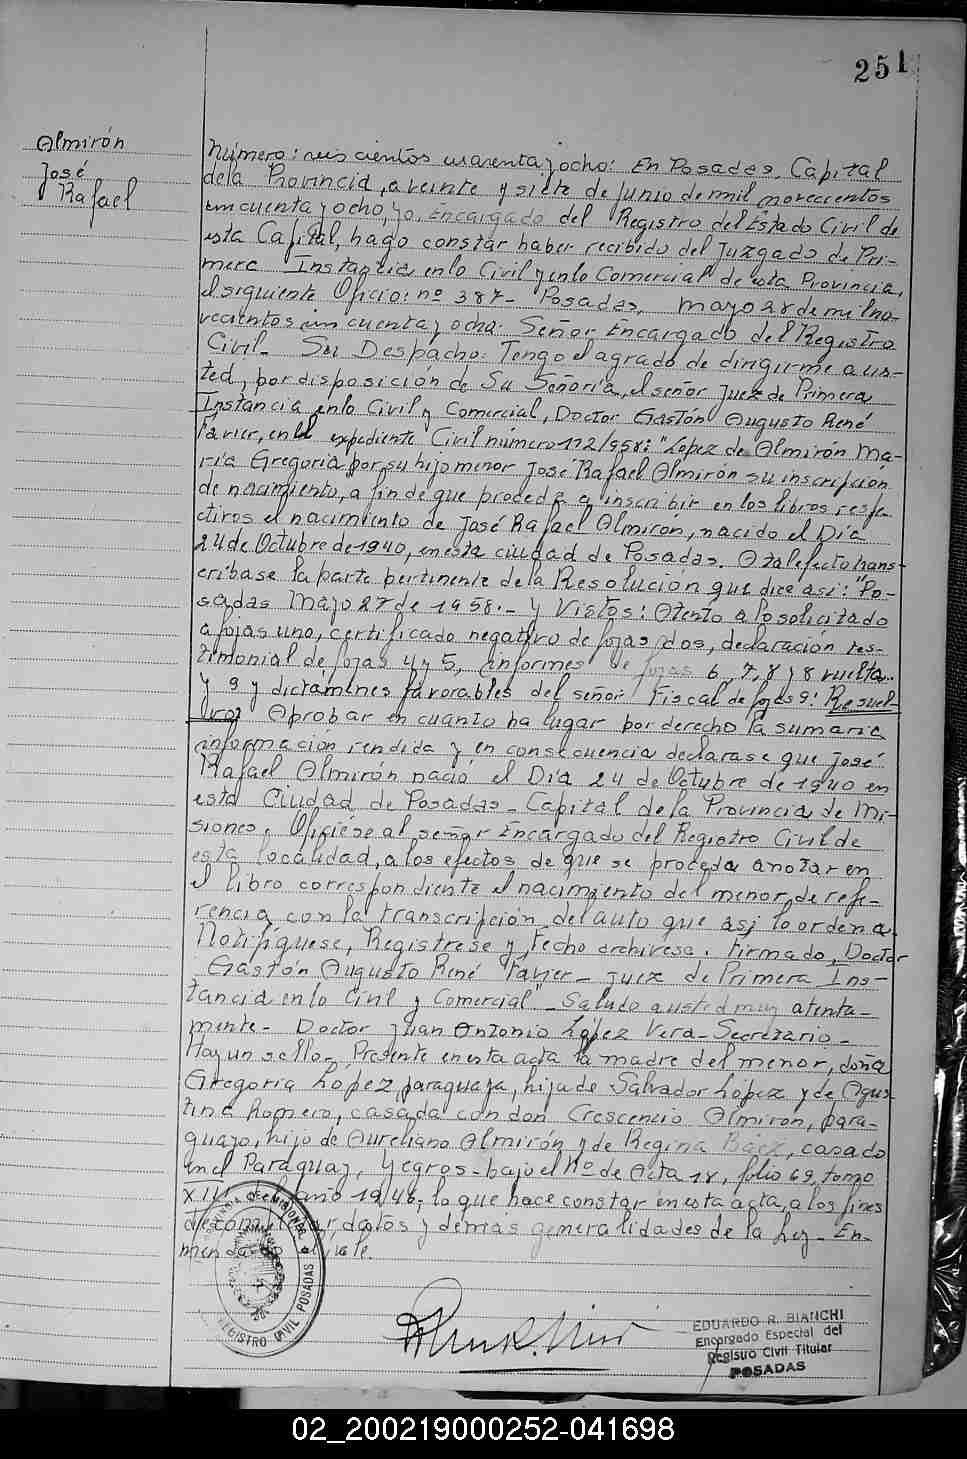 251
Almirón
José
Rafael
Número: seis cientos cuarenta y ocho: En Posadas, Capital
de la Provincia, a veinte y siete de Junio de mil novecientos
cincuenta y ocho, yo, Encargado del Registro del Estado Civil de
esta Capital, hago constar haber recibido del Juzgado de Pri-
mera Instancia en lo Civil y en lo Comercial de esta Provincia,
el siguiente Oficio: nº 387- Posadas, mayo 28 de mil no-
vecientos cincuenta y ocho. Señor Encargado del Registro
Civil- Su Despacho: Tengo el agrado de dirigirme a us-
ted, por disposición de Su Señoría, el señor Juez de Primera
Instancia en lo Civil y Comercial, Doctor Gastón Augusto René
Favier, en el expediente Civil número 112/958: "López de Almirón Ma-
ría Gregoria por su hijo menor José Rafael Almirón su inscripción
de nacimiento, a fin de que proceda a inscribir en los libros respe-
ctivos el nacimiento de José Rafael Almiron, nacido el Día
24 de Octubre de 1940, en esta ciudad de Posadas. A tal efecto trans-
cribase la parte pertinente de la Resolución que dice así: "Po-
sadas Mayo 27 de 1958.- Y Vistos: Atento a lo solicitado
a fojas uno, certificado negativo de fojas dos, declaración tes-
timonial de fojas 4 y 5, informes de fojas 6, 7, 8 y 8 vuelta..
y 9 y dictámines favorables del señor Fiscal de fojas 9: Resuel-
vo: Aprobar en cuanto ha lugar por derecho la sumaria
información rendida y en consecuencia declarase que José
Rafael Almirón nació el Día 24 de Octubre de 1940 en
esta Ciudad de Posadas- Capital de la Provincia de Mi-
siones. Ofíciese al señor Encargado del Registro Civil de
esta localidad, a los efectos de que se proceda anotar en
el libro correspondiente el nacimiento del menor de refe-
rencia con la transcripción del auto que así lo ordena.
Notifíquese, Regístrese y Fecho archívese. Firmado, Doctor
Gastón Augusto René Favier- Juez de Primera Ins-
tancia en lo Civil y Comercial" Saludo a usted muy atenta-
mente- Doctor Juan Antonio López Vera- Secretario-
Hay un sello- Presente en esta acta la madre del menor, doña
Gregoria López, paraguaya, hija de Salvador López y de Agus-
tina Romero, casada con don Crescencio Almirón, para-
guayo, hijo de Aureliano Almirón y de Regina Báez, casado
en el Paraguay, Yegros- bajo el Nº de Acta 18, folio 69, tomo
XII, del año 1946, lo que hace constar en esta acta, a los fines
de completar datos y demás generalidades de la Ley- En-
mendado vale.
PROVINCIA DE MISIONES
REGISTRO CIVIL POSADAS
EDUARDO R. BIANCHI
Encargado Especial del
Registro Civil Titular
POSADAS
02_200219000252-041698